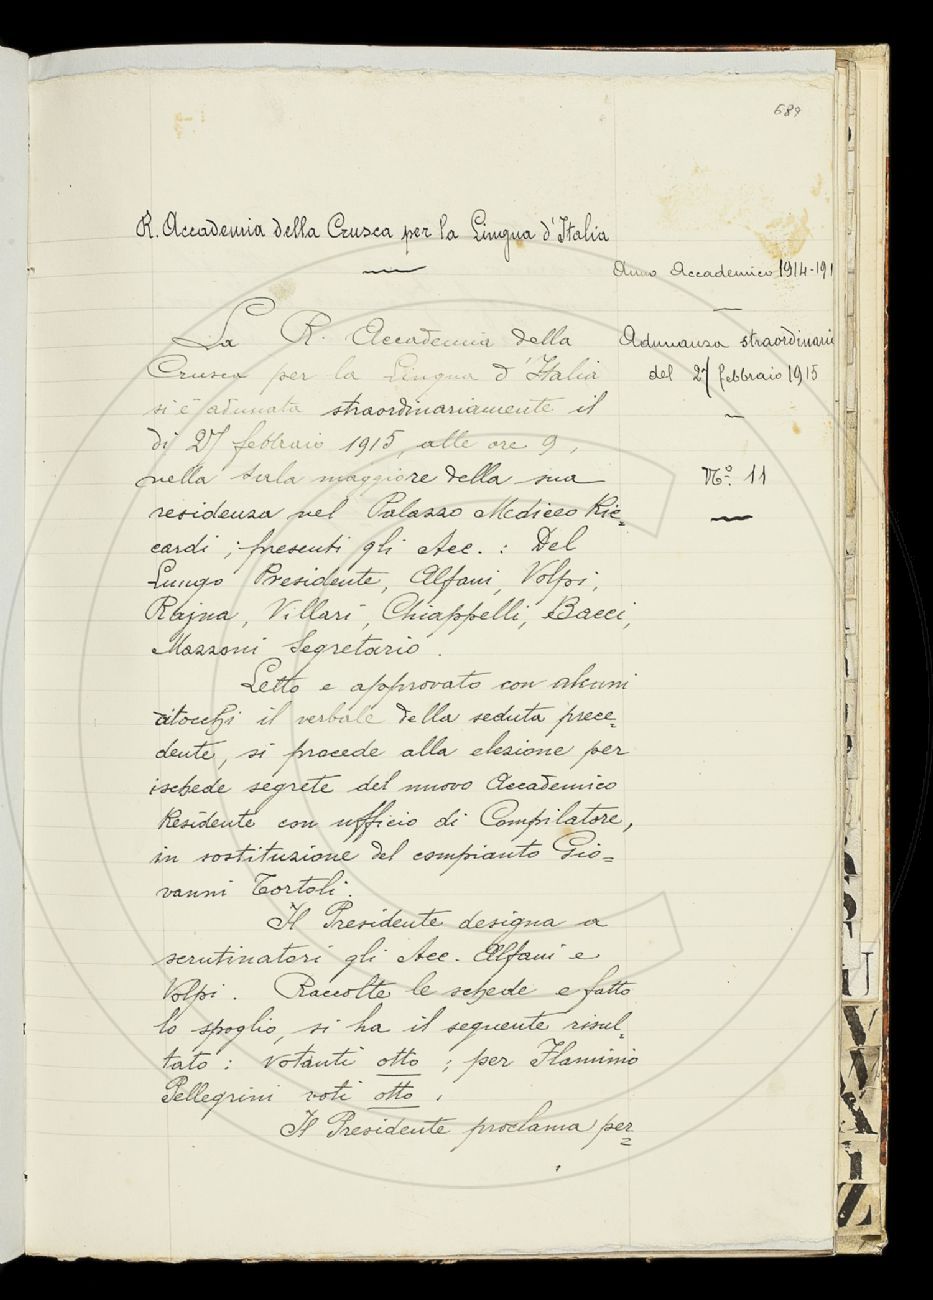 689
R. Accademia della Crusca per la Lingua d'Italia
Anno Accademico 1914-191
Adunanza straordinari
del 27 febbraio 1915
N.º 11
La R. Accademia della
Crusca per la Lingua d'Italia
si è adunata straordinariamente il
dì 27 febbraio 1915, alle ore 9,
nella Sala maggiore della sua
residenza nel Palazzo Mediceo Ric=
cardi; presenti gli Acc.: Del
Lungo Presidente, Alfani, Volpi,
Rajna, Villari, Chiappelli, Bacci,
Mazzoni Segretario.
Letto e approvato con alcuni
ritocchi il verbale della seduta prece=
dente, si procede alla elezione per
ischede segrete del nuovo Accademico
Residente con ufficio di Compilatore,
in sostituzione del compianto Gio=
vanni Tortoli.
Il Presidente designa a
scrutinatori gli Acc. Alfani e
Volpi. Raccolte le schede e fatto
lo spoglio, si ha il seguente risul=
tato: Votanti otto; per Flaminio
Pellegrini voti otto.
Il Presidente proclama per=
V
X
Z